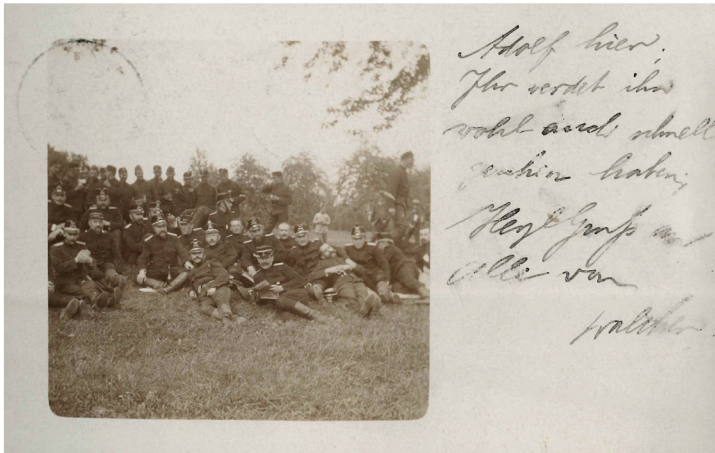 Adolf hier.
Ihr werdet ihn
wohl auch schnell
gesehen haben,
Herzl. Gruß an
Alle von